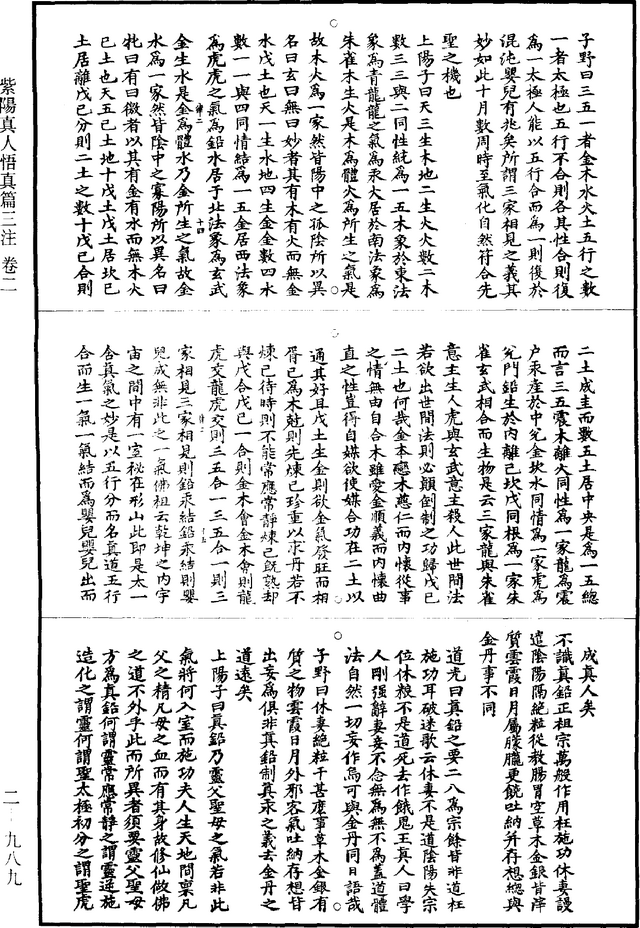 紫陽真人悟真篇三注 卷二
二 九八九
子野曰三五一者金木水火土五行之數
一者太極也五行不合則各其性合則復
為一太極人能以五行合而為一則復於
混沌嬰兒有兆矣所謂三家相見之義其
妙如此十月數周時至氣化自然符合先
聖之機也
上陽子曰天三生木地二生火火數二木
數三三與二同性統為一五木象於東法
象為青龍龍之氣為汞火居於南法象為
朱雀木生火是木為體火為所生之氣是
故木火為一家然皆陽中之孤陰所以異
名曰玄曰無曰妙者其有木有火而無金
水戊土也天一生水地四生金金數四水
數一一與四同情結為一五金居西法象
為虎虎之氣為鉛水居于北法象為玄武
金生水是金為體水乃金所生之氣故金
水為一家然皆陰中之寡陽所以異名曰
牝曰有曰徼者以其有金有水而無木火
己土也天五己土地十戊土戊土居坎己
土居離戊己分則二土之數十戊己合則
二土成圭而數五土居中央是為一五總
而言三五震木離火同性為一家龍為震
户汞產於中兌金坎水同情為一家虎為
兌門鉛生於内離己坎戊同根為一家朱
雀玄武相合而生物是云三家龍與朱雀
意主生人虎與玄武意主殺人此世間法
若欲出世間法則必顛倒制之功歸戊己
二土也何哉金本戀木慈仁而内懷從事
之情無由自合木雖愛金順義而内懷曲
直之性豈得自媒欲使媒合功在二土以
通其好且戊土生金則欲金氣發旺而相
胥己為木尅則先煉己珍重以求丹若不
煉己待時則不能常應常靜煉己既熟却
與戊合戊己一合則金木會金木會則龍
虎交龍虎交則三五合一三五合一則三
家相見三家相見則鉛汞結鉛汞結則嬰
兒成無非此之一氣佛祖云乾坤之内宇
宙之間中有一寶秘在形山此即是太一
含真氣之妙是以五行分而名真道五行
合而生一氣一氣結而為嬰兒嬰兒出而
成真人矣
不識真鉛正祖宗萬般作用枉施功休妻謾
遣陰陽隔絶粒從教腸胃空草木金銀皆滓
質雲霞日月屬朦朧更饒吐納并存想總與
金丹事不同
道光曰真鉛之要二八為宗餘皆非道枉
施功耳破迷歌云休妻不是道陰陽失宗
位休粮不是道死去作餓鬼王真人曰學
人剛強辭妻妾不念無為無不為蓋道體
法自然一切妄作焉可與金丹同日語哉
子野曰休妻絶粒干甚麽事草木金銀有
質之物雲霞日月外邪客氣吐納存想皆
出妄為俱非真鉛制真汞之義去金丹之
道遠矣
上陽子曰真鉛乃靈父聖母之氣若非此
氣將何入室而施功夫人生天地間稟凡
父之精凡母之血而有其身故修仙做佛
之道不外乎此而所異者須要靈父聖母
方為真鉛何謂靈常應常靜之謂靈逆施
造化之謂靈何謂聖太極初分之謂聖虎